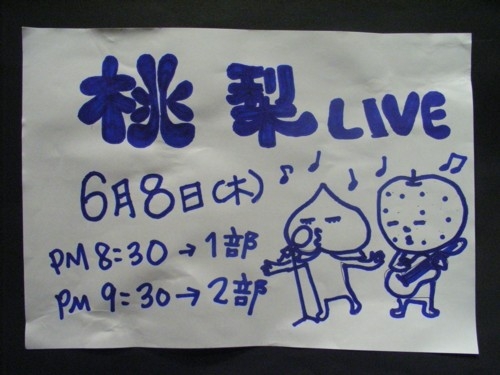 桃梨 LIVE
6月8日(木)
PM 8:30→1部
PM 9:30→2部